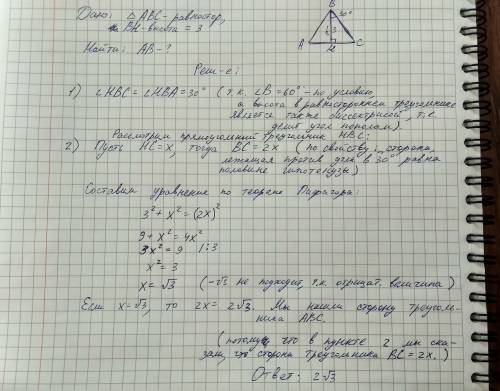 Дано: △ABC - равностор,
BH - высота = 3
Найти: AB - ?
B
30°
3
A H C
Реш-е:
1) ∠HBC = ∠HBA = 30° (т.к. ∠B = 60° - по условию,
а высота в равностороннем треугольнике
является также биссектрисой, т.е.
делит угол пополам).
Рассмотрим прямоугольный треугольник HBC:
2) Пусть HC = x, тогда BC = 2x (по свойству: сторона,
лежащая против угла в 30° равна
половине гипотенузы)
Составим уравнение по теореме Пифагора:
3² + x² = (2x)²
9 + x² = 4x²
3x² = 9 | : 3
x² = 3
x = √3 (-√3 не подходит, т.к. отрицат. величина)
Если x = √3, то 2x = 2√3. Мы нашли сторону треуголь-
ника ABC.
(потому что в пункте 2 мы ска-
зали, что сторона треугольника BC = 2x.)
Ответ: 2√3